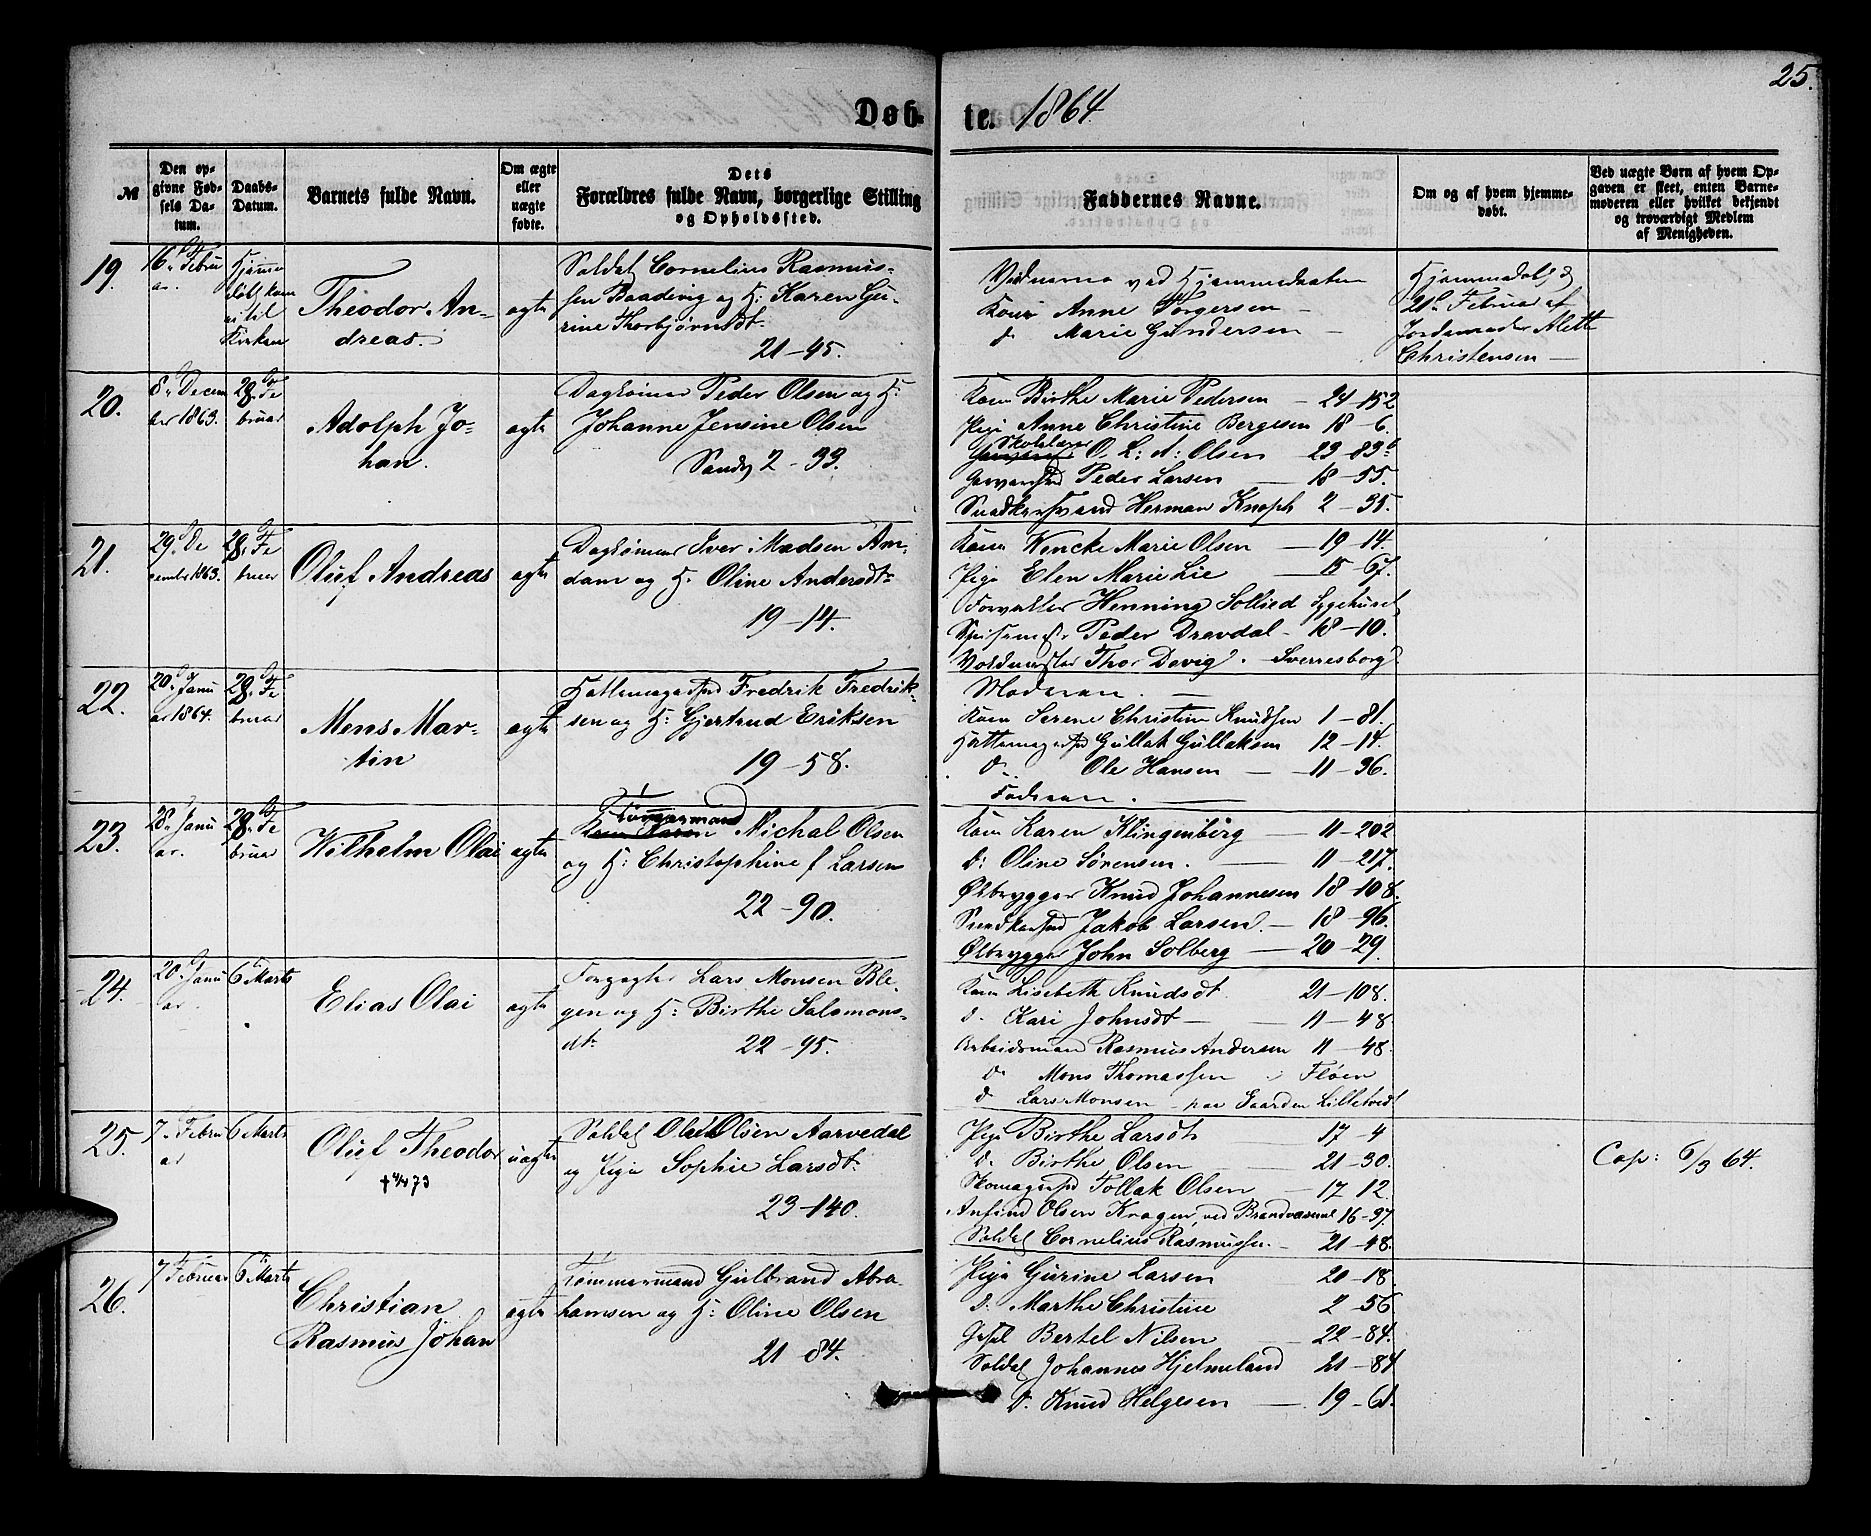 25.
Døb- te. 1864
№
Den opgivne Fødsels Datum.
Daabs-Datum.
Barnets fulde Navn.
Om ægte eller uægte fødte.
Dets Forældres fulde Navn, borgerlige Stilling og Opholdssted.
Faddernes Navne.
Om og af hvem hjemmedøbt.
Ved uægte Børn af hvem Opgaven er skeet, enten Barnemoderen eller hvilket bekjendt og troværdigt Medlem af Menigheden.
19. 16 Febru
ar.
Hjemme
døbt kom
ei til
Kirken
Theodor An-
dreas.
ægte
Soldat Cornelius Rasmus-
sen Baadsvig og H: Karen Gu-
rine Thorbjørnsdt.
21-45.
Vidnerne ved Hjemmedaaben
Kone Anne Torgersen -
d. Marie Gundersen -
Hjemmedøbt d.
21 Februar af
Jordemoder Alette
Christensen
20. 8. Decem
ber 1863.
28. Fe
bruar
Adolph Jo-
han.
ægte
Dagleier Peder Olsen og H:
Johanne Jensine Olsen
Sands 2-33.
Kone Birthe Marie Pedersen - 24-152
Pige Anne Christine Bergesen 18-6.
Skolelærer O. L. A: Olsen 23-83b
Peder Larsen - 18-55.
Herman Knoph 2-35.
21. 29. De
cember 1863.
28. Fe
bruar
Oluf Andreas
ægte
Iver Madsen Am-
dam og H. Oline Andersdt.
19-14.
Kone Wencke Marie Olsen - 19-14.
Pige Elen Marie Lie - 15-67.
Forvalter Henning Sollied Sygehuset
Peder Drevdal - 18-10.
Voldmester Thor Devig. Sverresborg
22. 20. Janu
ar 1864.
28. Fe
bruar
Mens Mar-
tin
ægte
Fredrik Fredrik-
sen og H. Gjertrud Eriksen
19-58.
Moderen. -
Kone Serene Christine Knudsen 1-81.
Gullak Gullaksen 12-14.
d. Ole Hansen - 11-36.
Faderen. -
23. 28. Janu
ar.
28. Fe
bruar
Wilhelm Olai
ægte
Tømmermand
Michal Olsen
og H: Christophine f Larsen
22-90.
Kone Karen Klingenberg - 11-202
d: Oline Sørensen. - 11-217.
Ølbrygger Knud Johannesen 18-108.
Jakob Larsen. - 18-96.
Ølbrygger John Solberg - 20-29.
24. 20. Janu
ar.
6 Marts
Elias Olai
ægte
Lars Monsen Ble-
gen og H: Birthe Salomons-
dt.
22-95.
Kone Lisebeth Knudsdt. 21-108.
d. Kari Johnsdt - 11-48.
Arbeidsmand Rasmus Andersen 11-48.
d. Mons Thomassen i Fløen
d Lars Monsen - paa Gaarden Lilletvedt
25. 7. Febru
ar
6 Marts
Oluf Theodor
uægte
Soldat Olai Olsen Aarvedal
og Pige Sophie Larsdt.
23-140.
Pige Birthe Larsdt - 17-4
d. Birthe Olsen - 21-30.
Tollak Olsen - 17-12.
Anfind Olsen Kragen, ved Brandvæsenet 16-37.
Soldat Cornelius Rasmussen. - 21-48.
Cop: 6/3 64.
26. 7 Februar 6 Marts
Christian
Rasmus Johan
ægte
Tømmermand Gulbrand Abra-
hamsen og H: Oline Olsen
21-84.
Pige Gurine Larsen 20-18.
d. Marthe Christine 2-56
Bertel Nilsen - 22-84.
Soldat Johannes Hjelmeland 21-84
d. Knud Helgesen - 19-61.